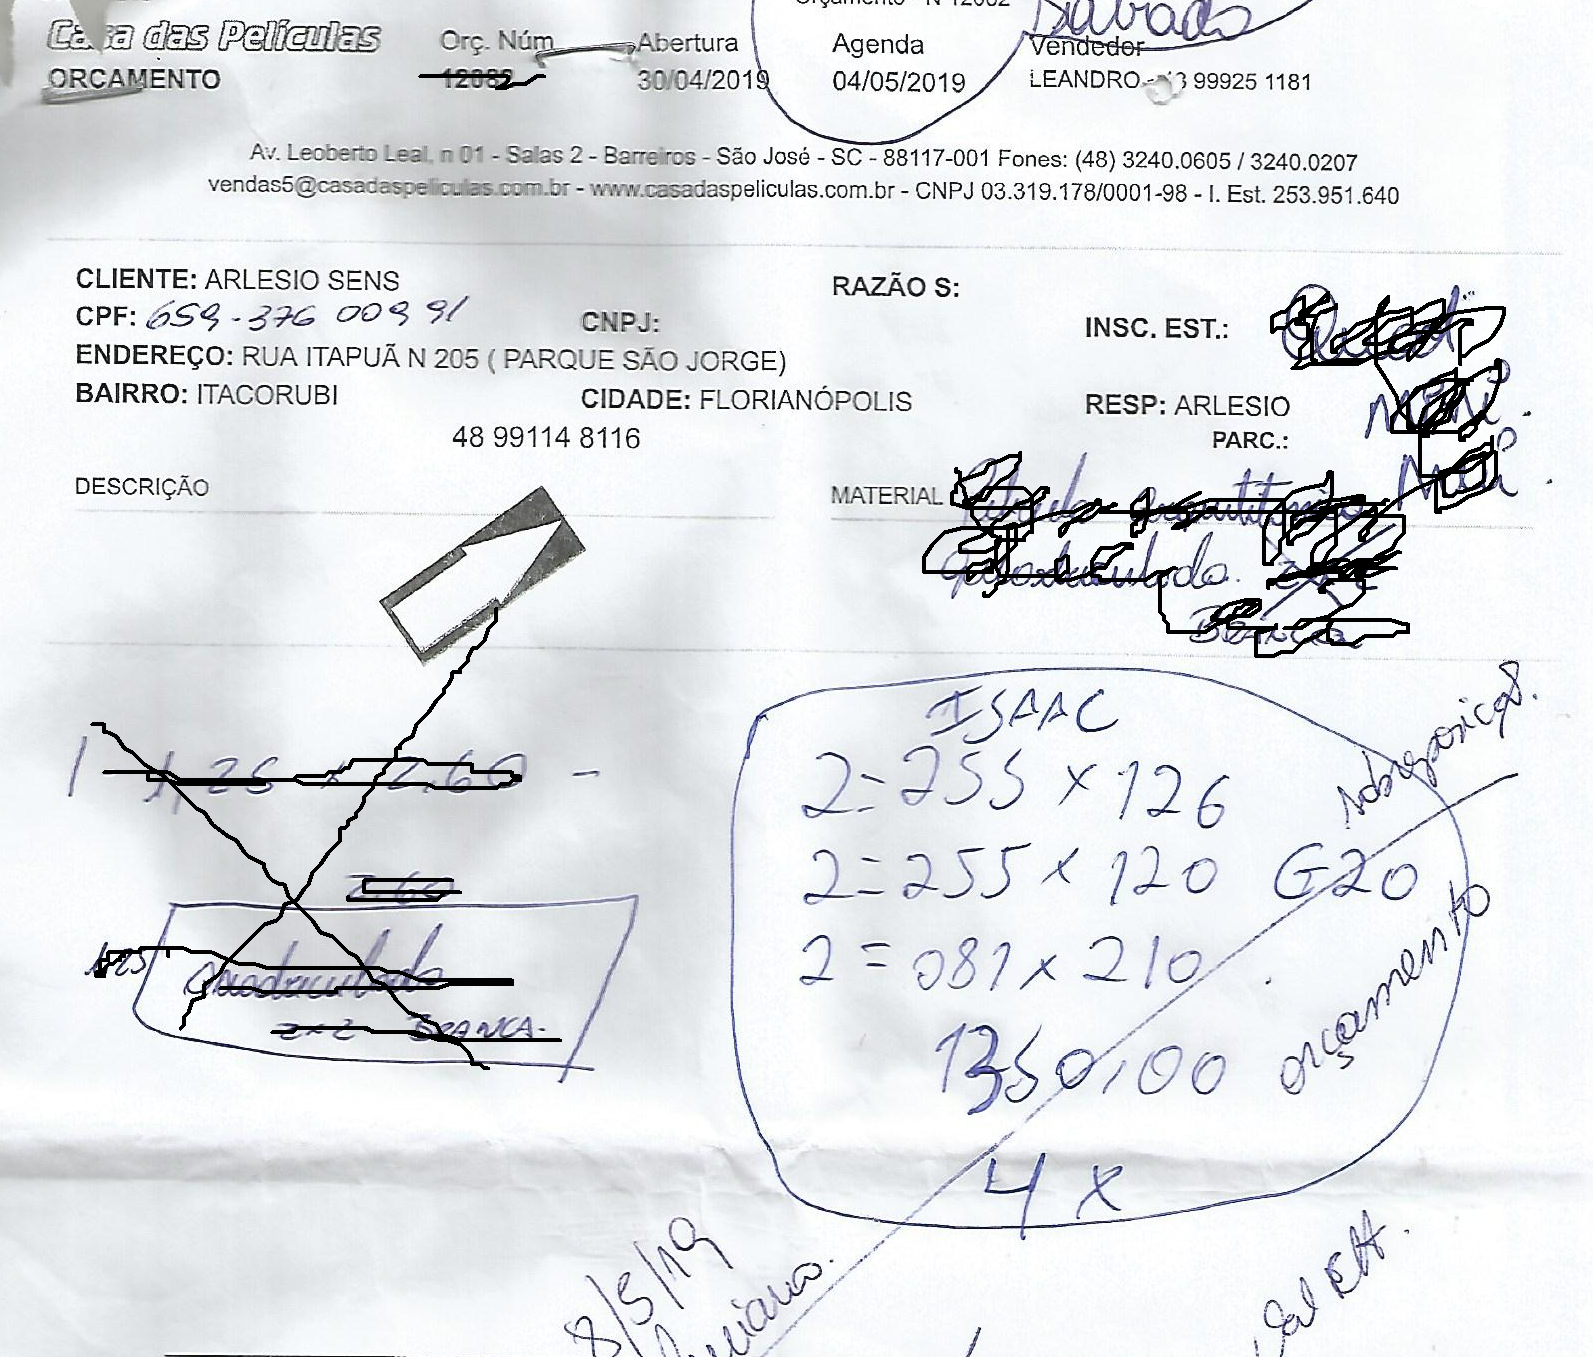 Casa das Películas
Orçamento - N 12082
Sabado
Orç. Núm
Abertura
Agenda
Vendedor
ORCAMENTO
12082
30/04/2019
04/05/2019
LEANDRO - 99925 1181
Av. Leoberto Leal, n 01 - Salas 2 - Barreiros - São José - SC - 88117-001 Fones: (48) 3240.0605 / 3240.0207
vendas5@casadaspeliculas.com.br - www.casadaspeliculas.com.br - CNPJ 03.319.178/0001-98 - I. Est. 253.951.640
CLIENTE: ARLESIO SENS
RAZÃO S:
CPF: 659-376 009 91
CNPJ:
INSC. EST.:
ENDEREÇO: RUA ITAPUÃ N 205 ( PARQUE SÃO JORGE)
BAIRRO: ITACORUBI
CIDADE: FLORIANÓPOLIS
RESP: ARLESIO
48 99114 8116
PARC.:
DESCRIÇÃO
MATERIAL
quadriculado 2x2
BRANCA
1 1,25 x 2,60 -
2.60
1.25
quadriculado
2x2 BRANCA.
ISAAC
2=255 x 126
2=255 x 120 G20
2=081 x 210
1350,00
4x
sobreposição.
orçamento
8/5/19